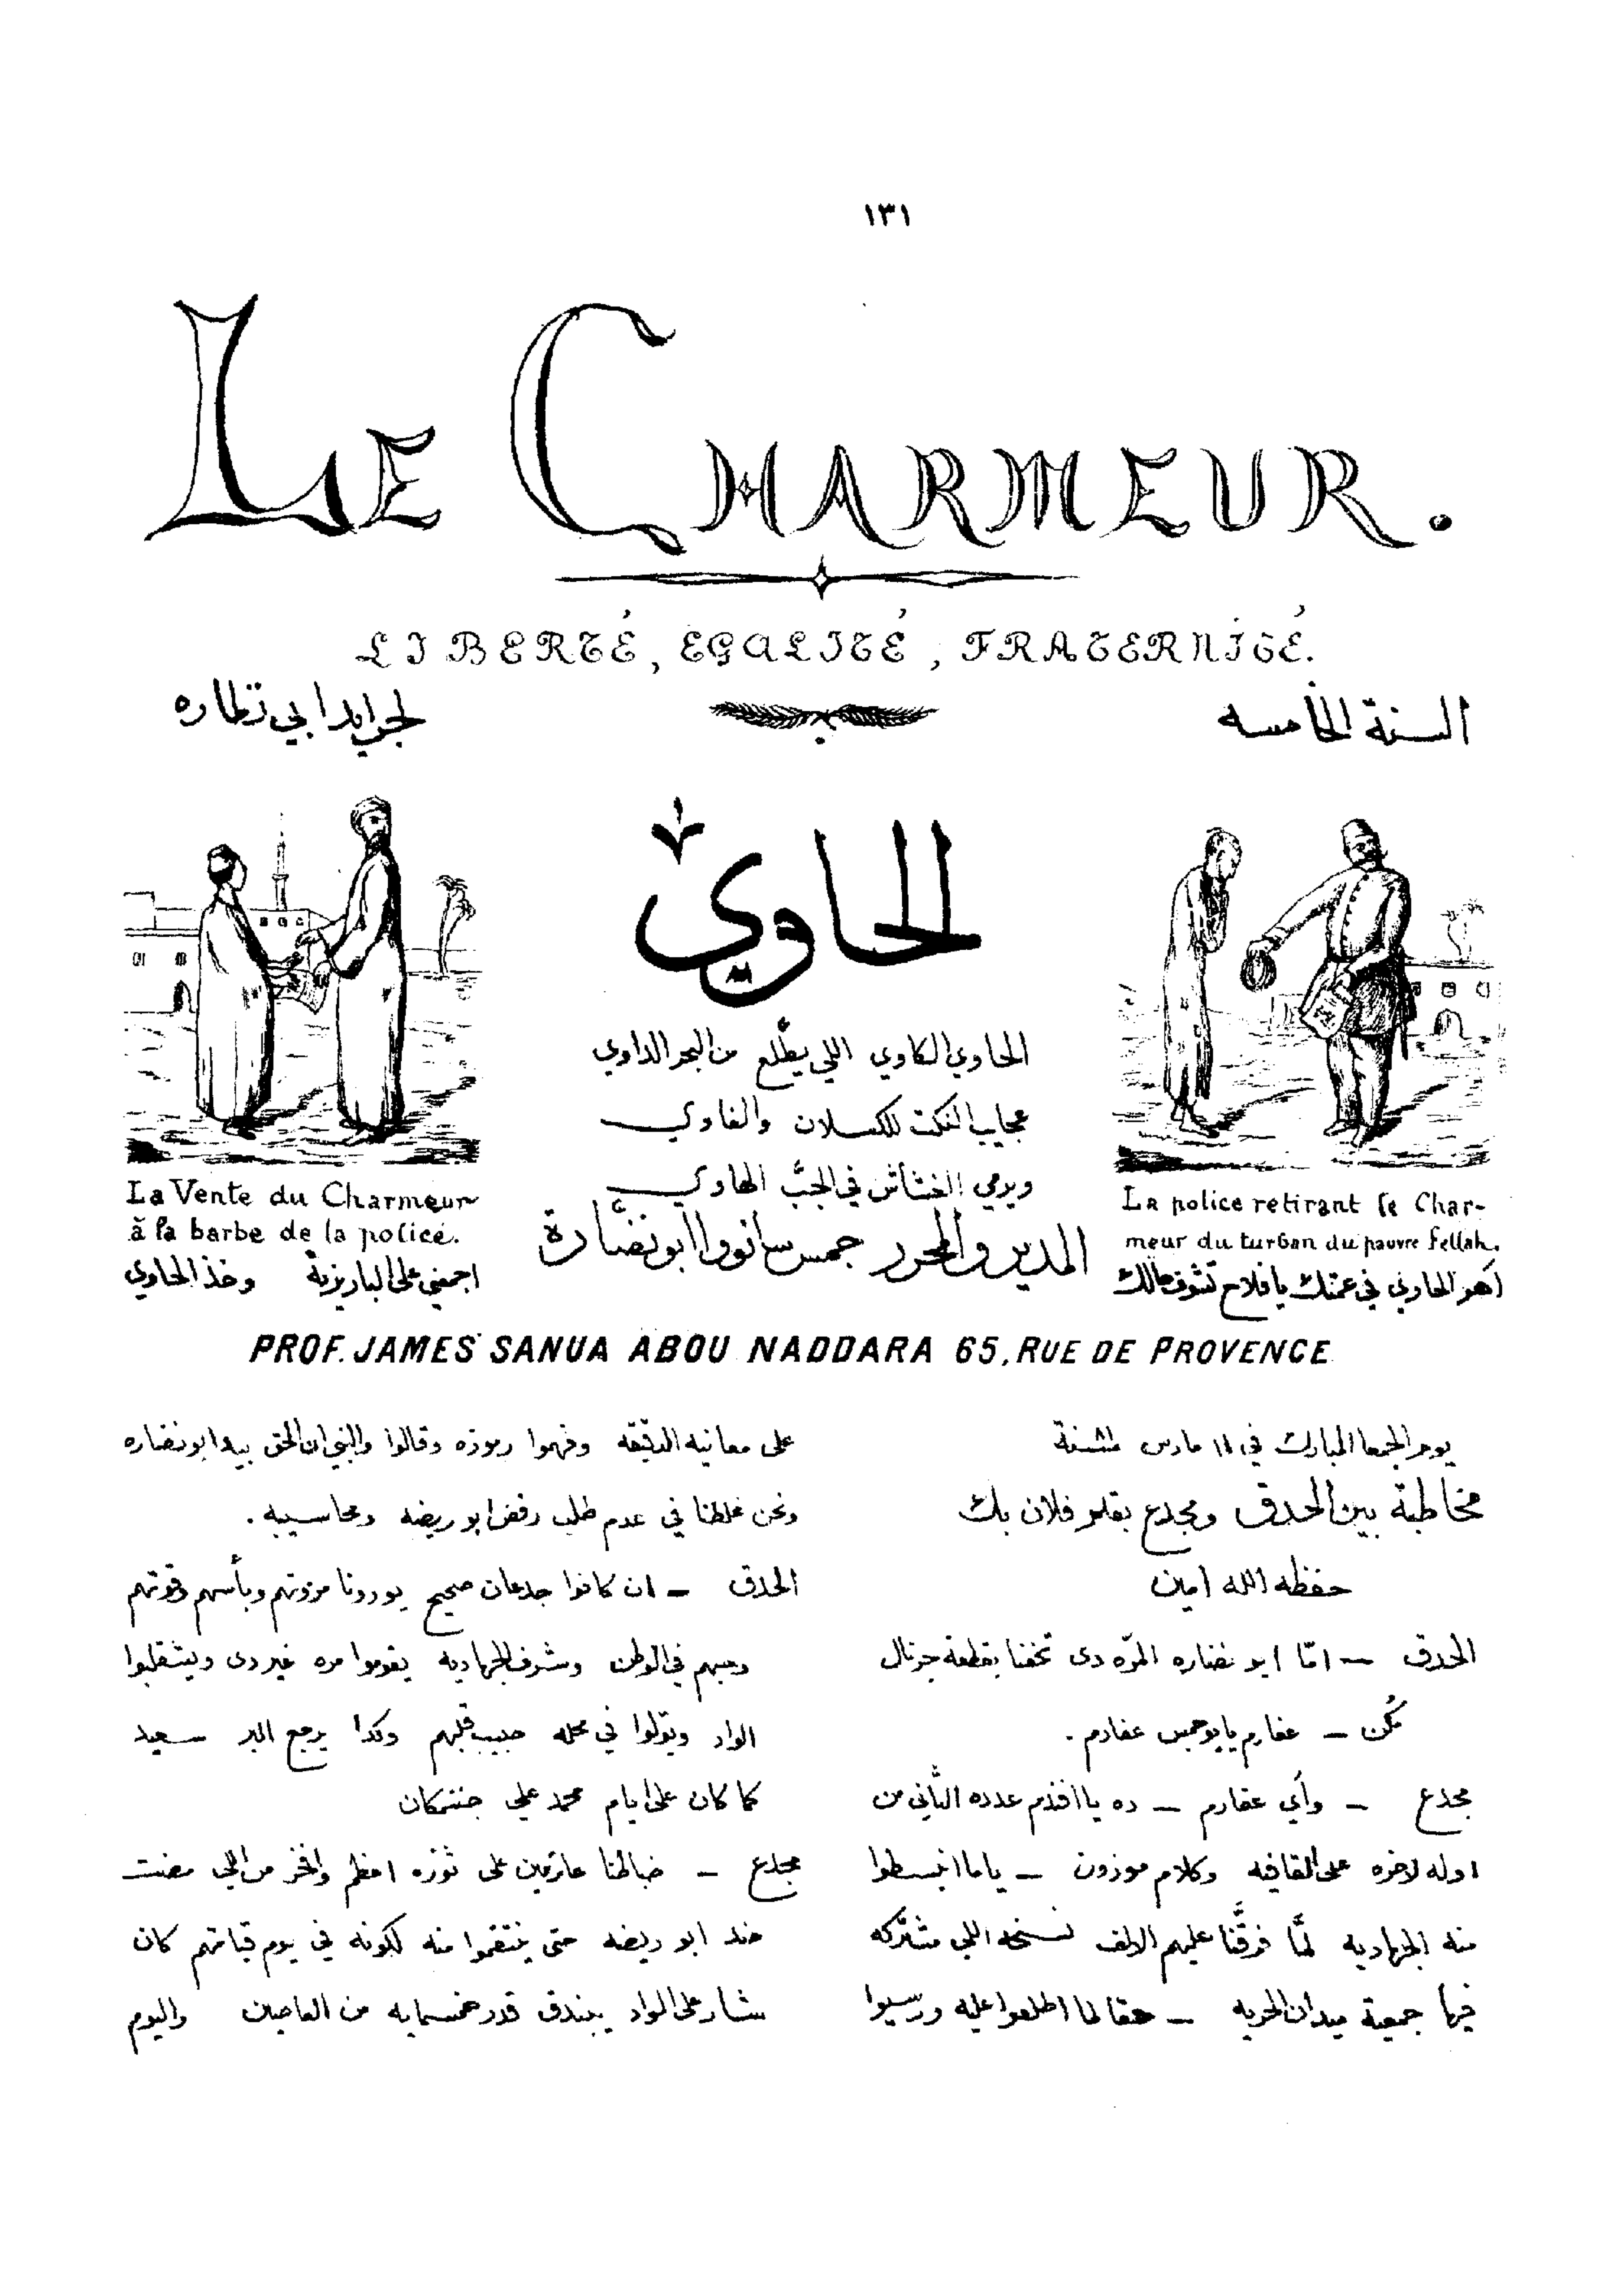 ١٣١
LE CHARMEUR.
LIBERTÉ, EGALITÉ, FRATERNITÉ.
السنة الخامسه
لجرايد ابي نظاره
الحاوي
الحاوي الكاوي اللي يطلّع من البحر الداوي
عجايب النكت للكسلان والغاوي
ويرمي الغشاش في الجبّ الهاوي
المدير والمحرر جمس سانووا ابو نضّارة
La Vente du Charmeur
à la barbe de la police.
اجمعني على الباريزية وخذ الحاوي
La police retirant le Char-
meur du turban du pauvre fellah.
اهو الحاوي في عمتك يا فلاح تشوف مالك
PROF. JAMES SANUA ABOU NADDARA 65, RUE DE PROVENCE
يوم الجمعا المبارك في ١١ مارس سنة
مخاطبة بين الحدق ومجدع بقلم فلان بك
حفظه الله امين
الحدق – امّا ابو نضاره المرّه دى تحفنا بقطعة جرنال
مكن – عفارم يابو جمس عفارم .
مجدع – وأي عفارم – ده يا افندم عدده الثاني من
اوله لاخره على القافيه وكلام موزون – ياما انبسطوا
منه الجهاديه لمّا فرّقنا عليهم الالف نسخه اللي مشتركه
فيها جمعية ميدان الحريه – حقا لما اطلعوا عليه ورسيوا
على معانيه الدقيقه وفهموا رموزه وقالوا والنبي ان الحق بيد ابو نضاره
ونحن غلطنا في عدم طلب رفض ابو ريضه ومحاسيبه .
الحدق – ان كانوا جدعان صحيح يورونا مروتهم وبأسهم وقوتهم
وحبهم في الوطن وشرف الجهاديه يقوموا مره غير دى ويشقلبوا
الواد ويولوا في محله حبيب قلبهم وكدا يرجع البر سعيد
كما كان على ايام محمد علي جنتمكان
مجدع – ضباطنا عازمين على ثوره اعظم وافخر من اللي مضت
ضد ابو ريضه حتى ينتقموا منه لكونه في يوم قيامتهم كان
شار على الواد يبندق قدر خمسمايه من العاصين واليوم